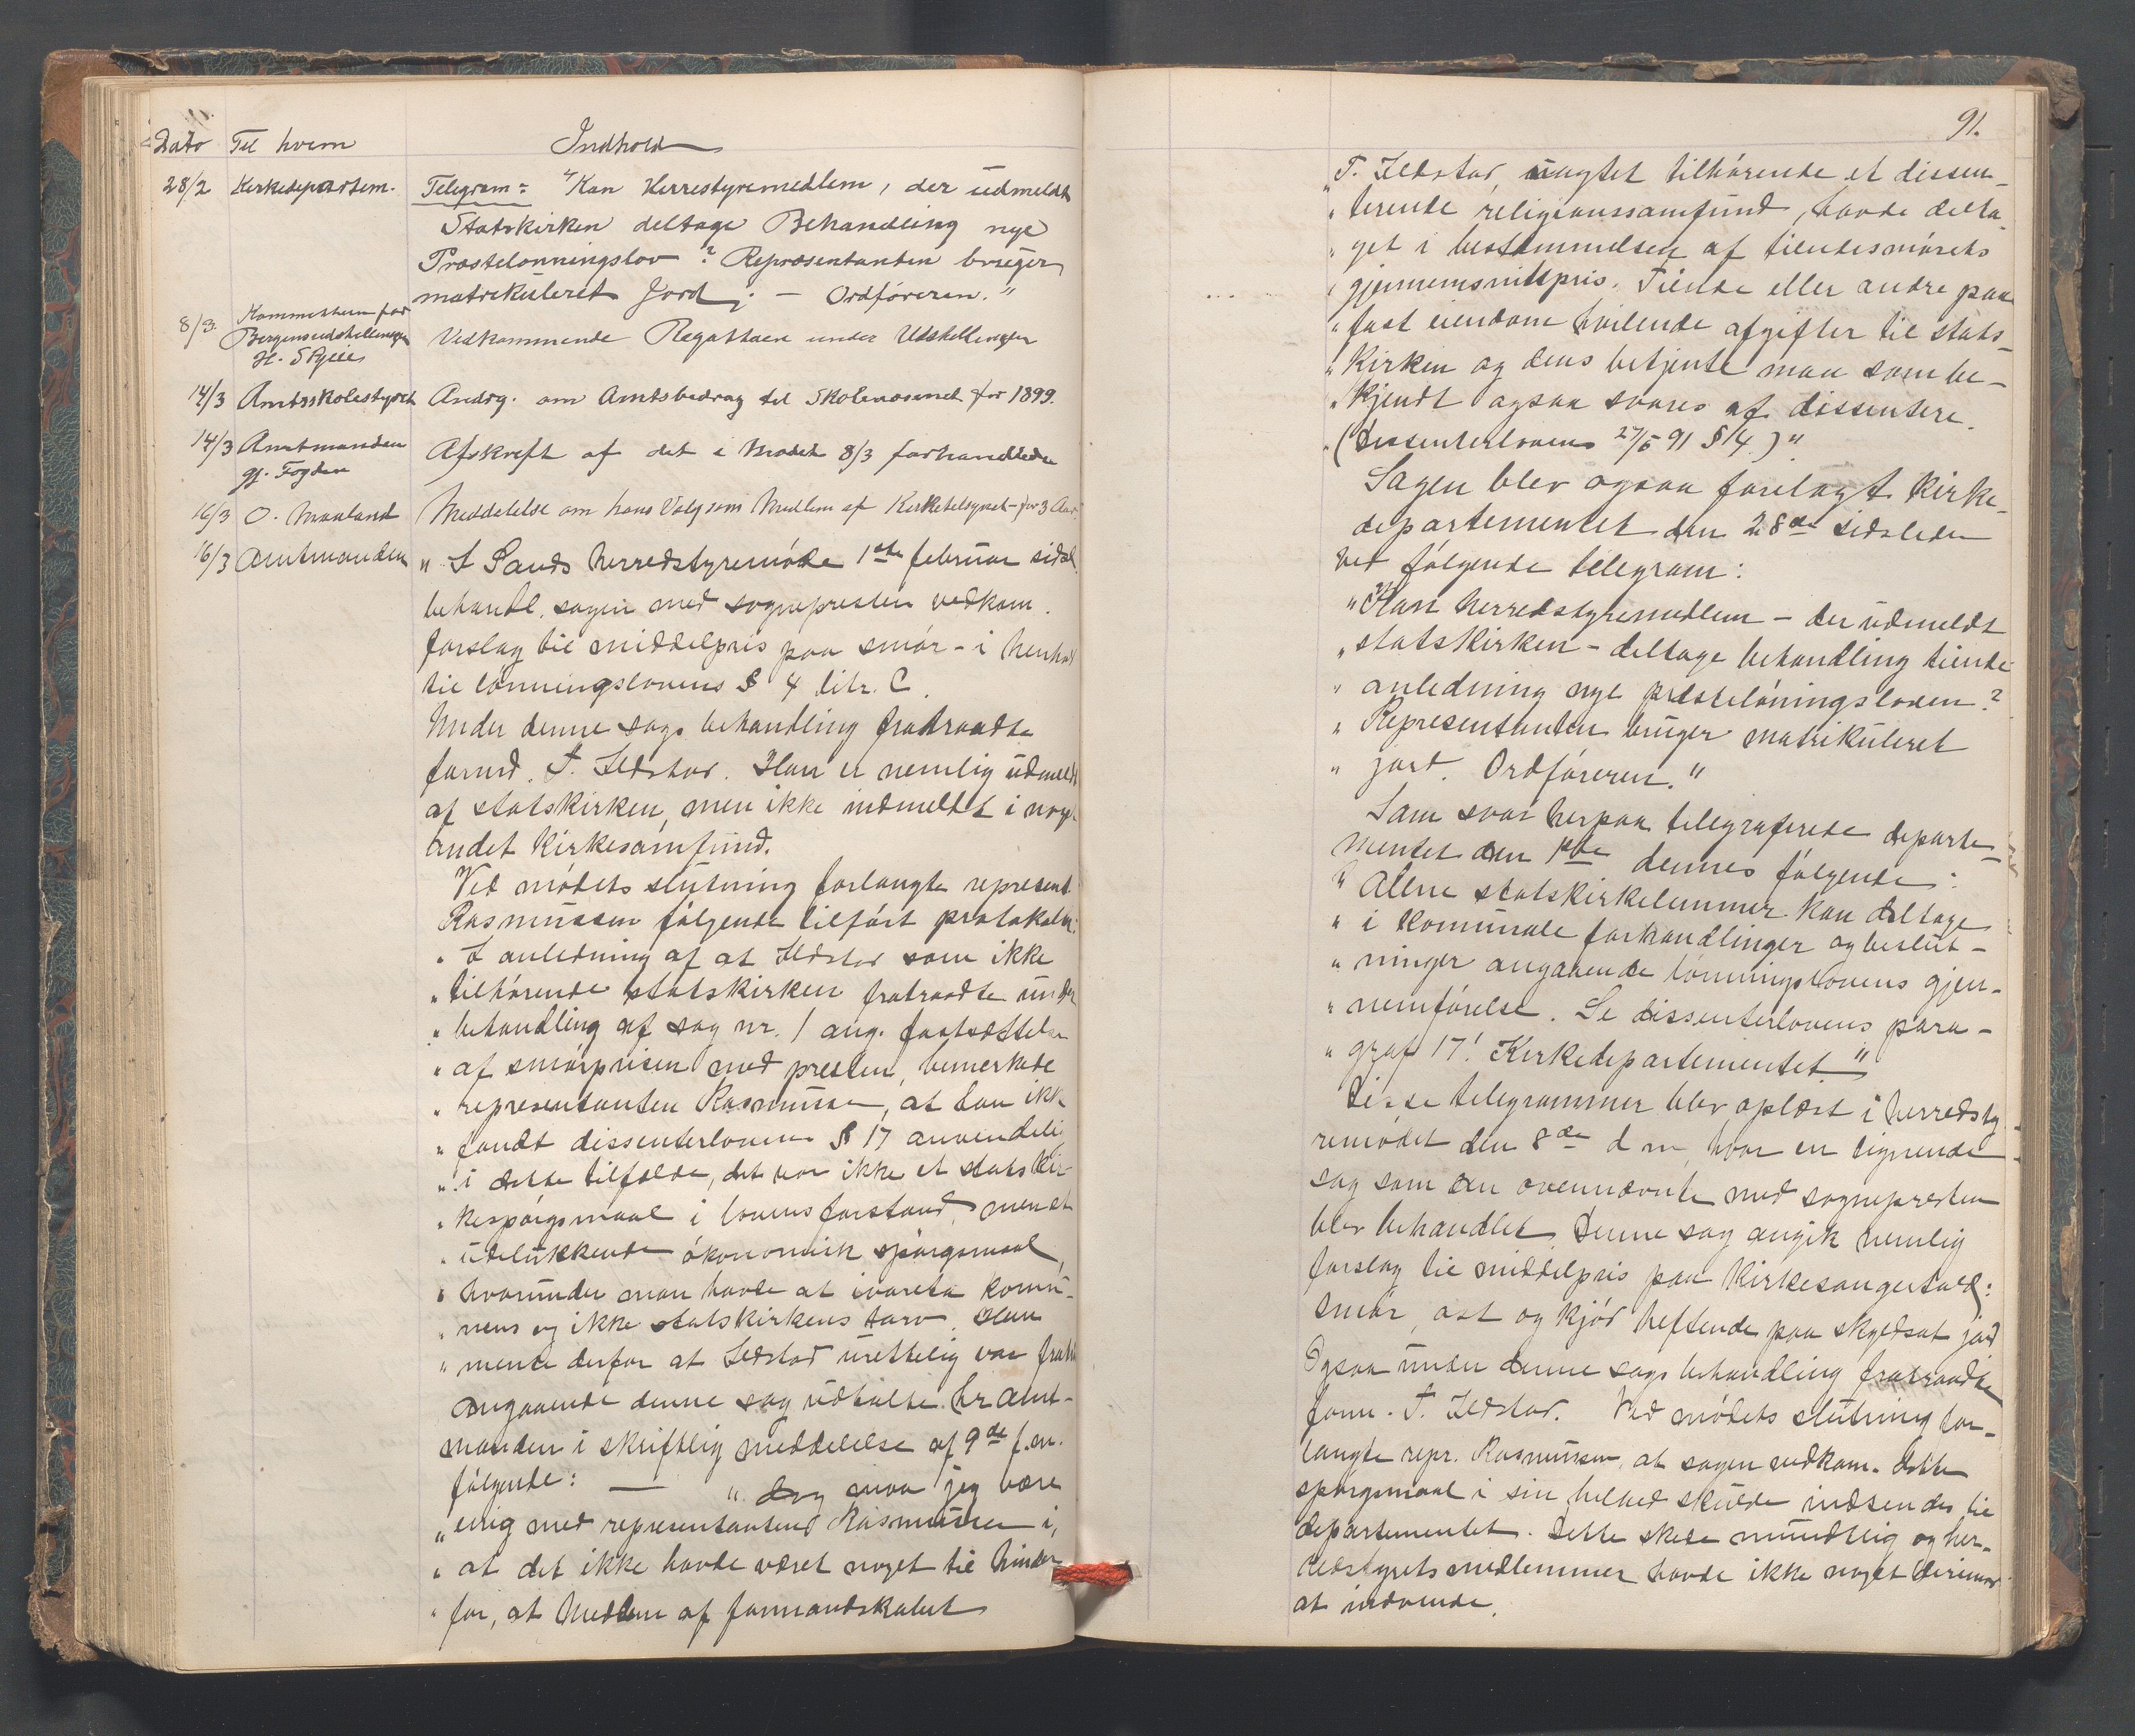 Dato Til hvem Indhold
28/2 Kirkedepartem. Telegram: "Kan Herrestyremedlem, der udmeldt
Statskirken deltage Behandling nye
Præstelønningslov? Repræsentanten bruger
matrikuleret Jord; — Ordføreren."
8/3. Kommiteen for
Bergensudstillingen
H. Skjeie
Vedkommende Regattaen under Udstillingen
14/3 Amtsskolestyret Andrg. om Amtsbedrag til Skolevæsenet for 1899.
14/3 Amtmanden
gj. Fogden
Afskrift af det i Mødet 8/3 forhandlede
16/3 O. Maaland Meddelelse om hans Valg som Medlem af Kirketilsynet for 3 Aar.
16/3 Amtmanden " I Sands herredstyremøde 1ste februar sidstl.
behandl. sagen med sognepresten vedkom.
forslag til middelpris paa smør - i henhol
til lønningslovens § 4 litr. C.
Under denne sags behandling fratraadte
formd. T. Ildstad. Han er nemlig udmeldt
af statskirken, men ikke indmeldt i noget
andet kirkesamfund.
Ved mødets slutning forlangte represent.
Rasmussen følgende tilført protokolen:
" I anledning af at Ildstad som ikke
" tilhørende statskirken fratraadte under
" behandling af sag nr. 1 ang. fastsættelse
" af smørprisen med presten, bemerkede
" representanten Rasmussen, at han ikke
" fandt dissenterlovens § 17 anvendelig
" i dette tilfælde, det var ikke et statskir-
" kespørgsmaal i lovens forstand, men et
" udelukkende økonomisk spørgsmaal,
" hvorunder man havde at ivareta komu-
" nens og ikke statskirkens tarv. Han
" mente derfor at Ildstad urettelig var fratr
Angaaende denne sag udtalte hr amt-
manden i skriftlig meddelelse af 9de f.m.
følgende: — " Dog maa jeg være
" enig med representanten Rasmussen i,
" at det ikke havde været noget til hinder
" for, at Medlem af formandskabet
91.
" T. Ildstad, uagtet tilhørende et dissen-
" terende religionssamfund, havde delta-
" get i bestemmelsen af tiendesmørets
" gjennemsnitspris. Tiende eller andre paa
" fast eiendom hvilende afgifter til stats-
" kirken og dens betjente maa som be-
" kjendt ogsaa svares af dissentere.
" (Dissenterlovens 27/6 91 § 14.)"
Sagen blev ogsaa forelagt Kirke-
departementet den 28de sidstleden
ved følgende telegram:
" Kan herredstyremedlem - der udmeldt
" statskirken - deltage behandling tiende
" anledning nye presteløningsloven?
" Representanten bruger matrikuleret
" jord. Ordføreren."
Som svar herpaa telegraferede departe-
mentet den 1ste dennes følgende:
" Alene statskirkelemmer kan deltage
" i komunale forhandlinger og beslut-
" ninger angaaende lønningslovens gjen-
" nemførelse. Se dissenterlovens para-
" graf 17! Kirkedepartementet"
Disse telegrammer blev oplæst i herredsty-
remødet den 8de d m, hvor en lignende
sag som den ovennævnte med sognepresten
blev behandlet. Denne sag angik nemlig
forslag til middelpris paa kirkesangertold:
smør, ost og kjød heftende paa skyldsat jord
Ogsaa under denne sags behandling fratraadte
form. T. Ildstad. Ved mødets slutning for-
langte repr. Rasmussen, at sagen vedkom. dette
spørgsmaal i sin helhed skulde indsendes til
departementet. Dette skede mundtlig og her-
redstyrets medlemmer havde ikke noget derimod
at indvende.